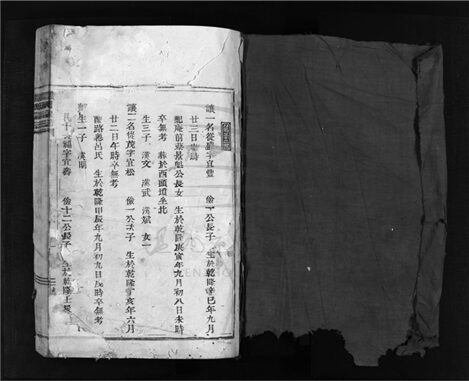 讓一名從 字宜豐 儉一公長子 生於乾隆辛巳年九月
廿三日 時
配庵前 景魁公長女 生於乾隆庚寅年九月初八日未時
卒無考 葬於西頭墳坐北
生三子 漢文 漢武 漢斌 女一
讓二名從茂字宜松 儉一公次子 生於乾隆 亥年六月
廿二日午時卒無考
配路 呂氏 生於乾隆甲辰年九月初九日 時卒無考
生一子 漢
十 福字宜 儉十二公長子 生於乾隆